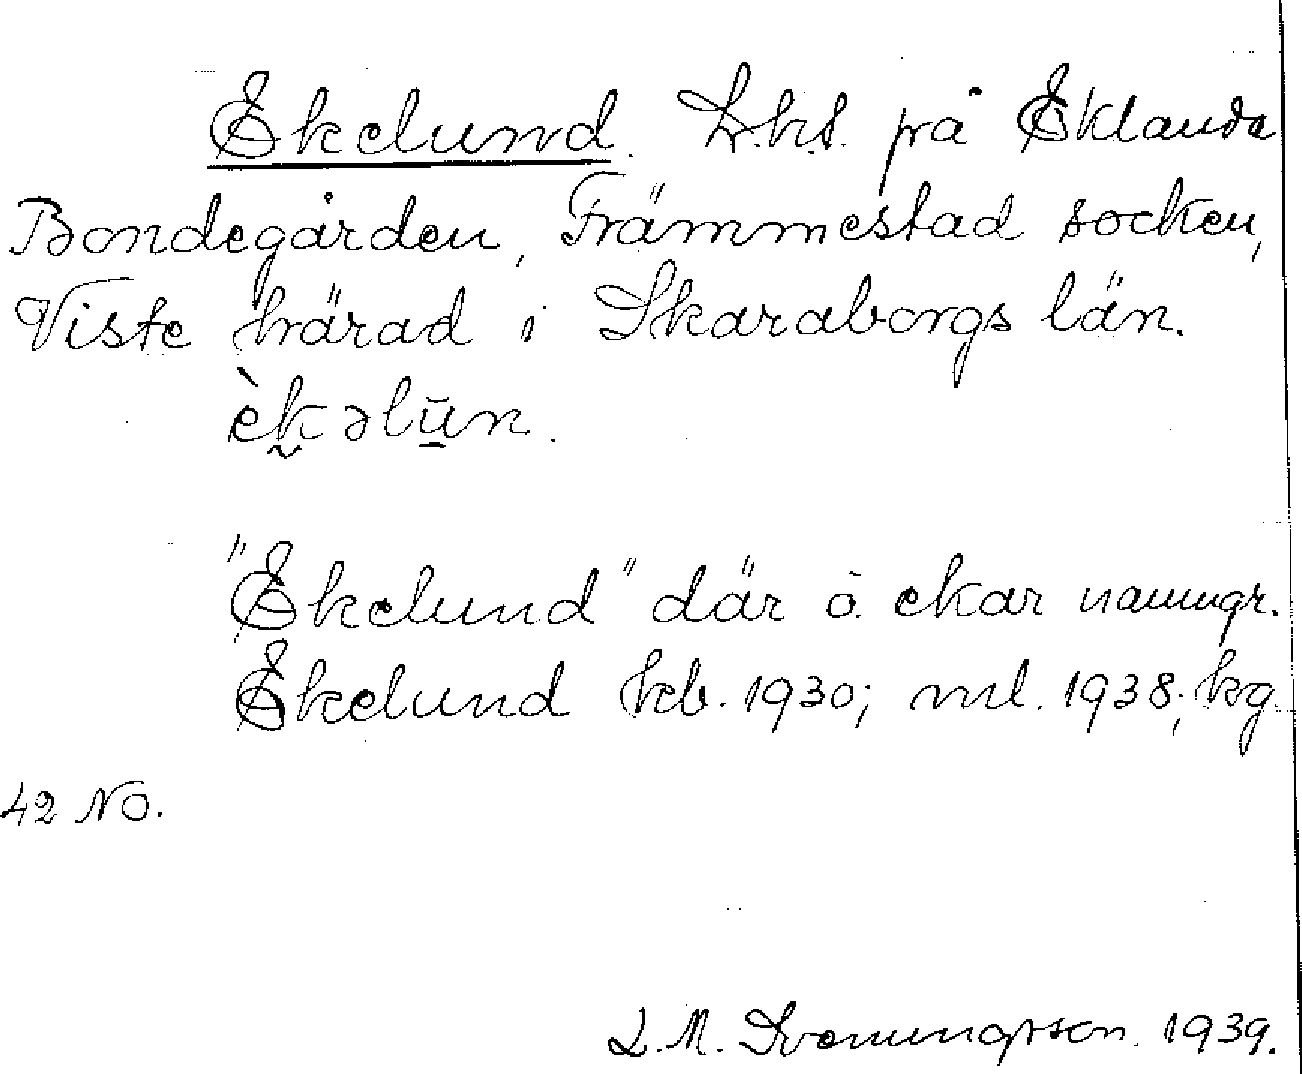 Ekelund. L.h.s. på Eklanda
Bondegården, Främmestad socken,
Viste härad i Skaraborgs län.
èk̰əlūn.
"Ekelund" där ä ekar namngr.
Ekelund kb. 1930; ml. 1938; kg
42 NO.
L. M. Svenungsson. 1939.